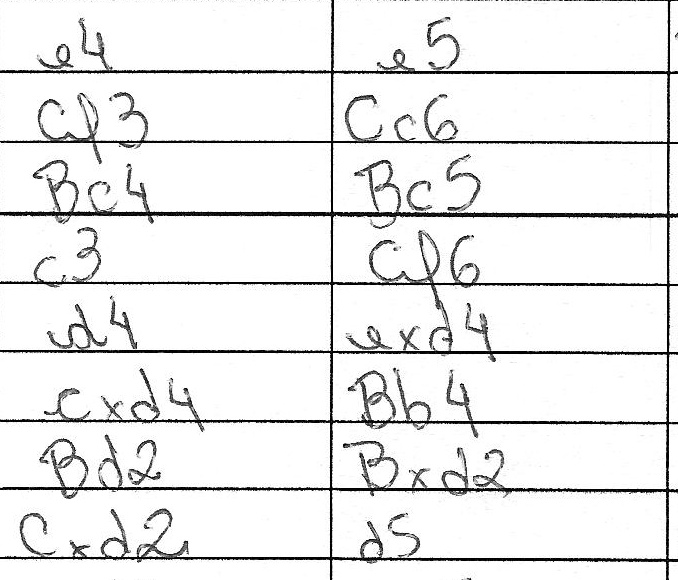 e4 e5
Cf3 Cc6
Bc4 Bc5
c3 Cf6
d4 exd4
cxd4 Bb4
Bd2 Bxd2
Cxd2 d5